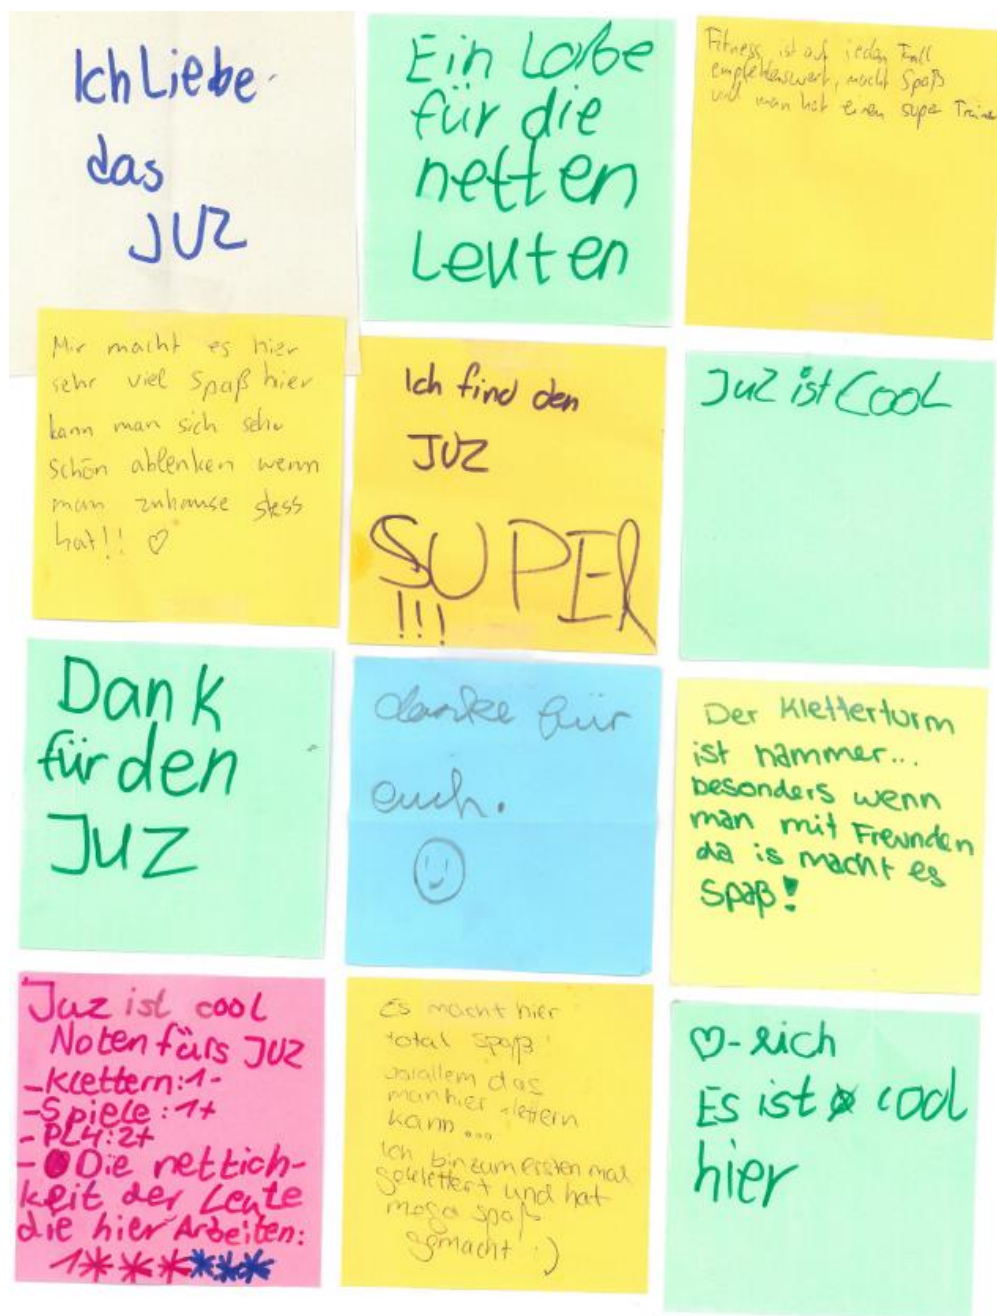 Ich Liebe
das
JUZ
Ein Lobe
für die
netten
Leuten
Fitness ist auf jeden Fall
empfehlenswert, macht Spaß
und man hat einen super Trainer
Mir macht es hier
sehr viel Spaß hier
kann man sich sehr
schön ablenken wenn
man zuhause stess
hat!! ♡
Ich find den
JUZ
SUPER
!!!
Juz ist Cool
Dank
für den
JUZ
danke für
euch.
Der Kletterturm
ist hammer...
besonders wenn
man mit Freunden
da is macht es
Spaß!
Juz ist cool
Noten fürs JUZ
-Klettern: 1-
-Spiele: 1+
-PS4: 2+
- Die nettich-
keit der Leute
die hier Arbeiten:
1******
Es macht hier
total Spaß!
vorallem das
man hier klettern
kann...
Ich bin zum ersten mal
geklettert und hat
mega spaß
gemacht :)
♡-lich
Es ist cool
hier